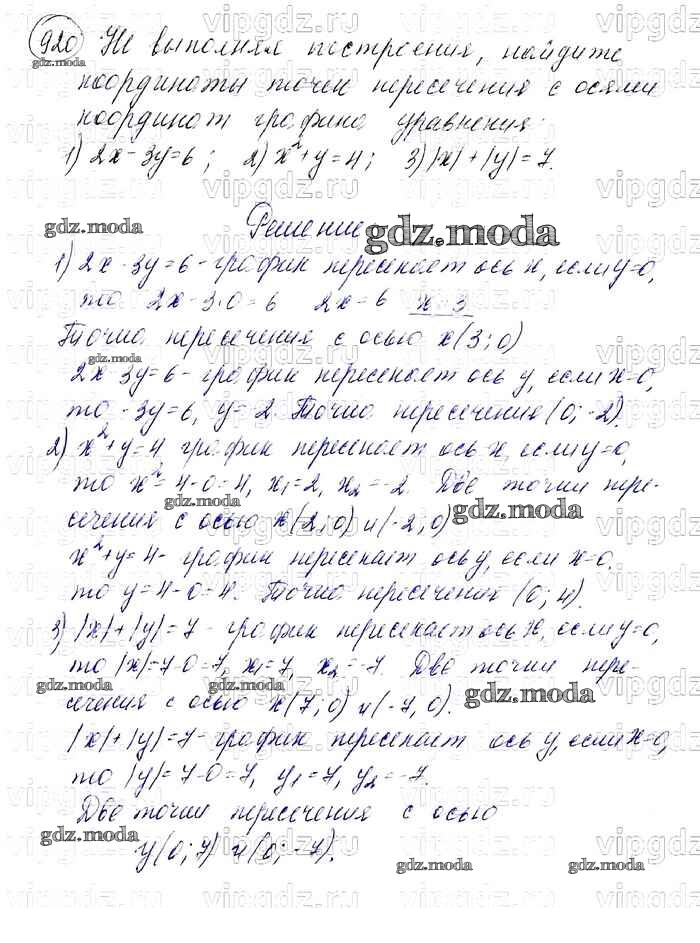 920 Не выполняя построения, найдите
gdz.moda
координаты точек пересечения с осями
координат графика уравнения:
1) 2x - 3y = 6; 2) x² + y = 4; 3) |x| + |y| = 7.
gdz.moda
Решение
gdz.moda
1) 2x - 3y = 6 - график пересекает ось x, если y=0,
то 2x - 3·0 = 6 2x = 6 x = 3
Точка пересечения с осью x (3; 0)
gdz.moda
2x - 3y = 6 - график пересекает ось y, если x=0,
то -3y = 6, y = -2. Точка пересечения (0; -2).
2) x² + y = 4 график пересекает ось x, если y=0,
то x² = 4 - 0 = 4, x₁ = 2, x₂ = -2. Две точки пере-
gdz.moda gdz.moda
сечения с осью x (2; 0) и (-2; 0)
x² + y = 4 - график пересекает ось y, если x=0.
то y = 4 - 0 = 4. Точка пересечения (0; 4).
3) |x| + |y| = 7 - график пересекает ось x, если y=0,
то |x| = 7 - 0 = 7, x₁ = 7, x₂ = -7. Две точки пере-
gdz.moda gdz.moda gdz.moda
сечения с осью x (7; 0) и (-7, 0).
|x| + |y| = 7 - график пересекает ось y, если x=0,
то |y| = 7 - 0 = 7, y₁ = 7, y₂ = -7.
Две точки пересечения с осью
gdz.moda
y (0; 7) и (0; -7).
gdz.moda gdz.moda
vipgdz.ru